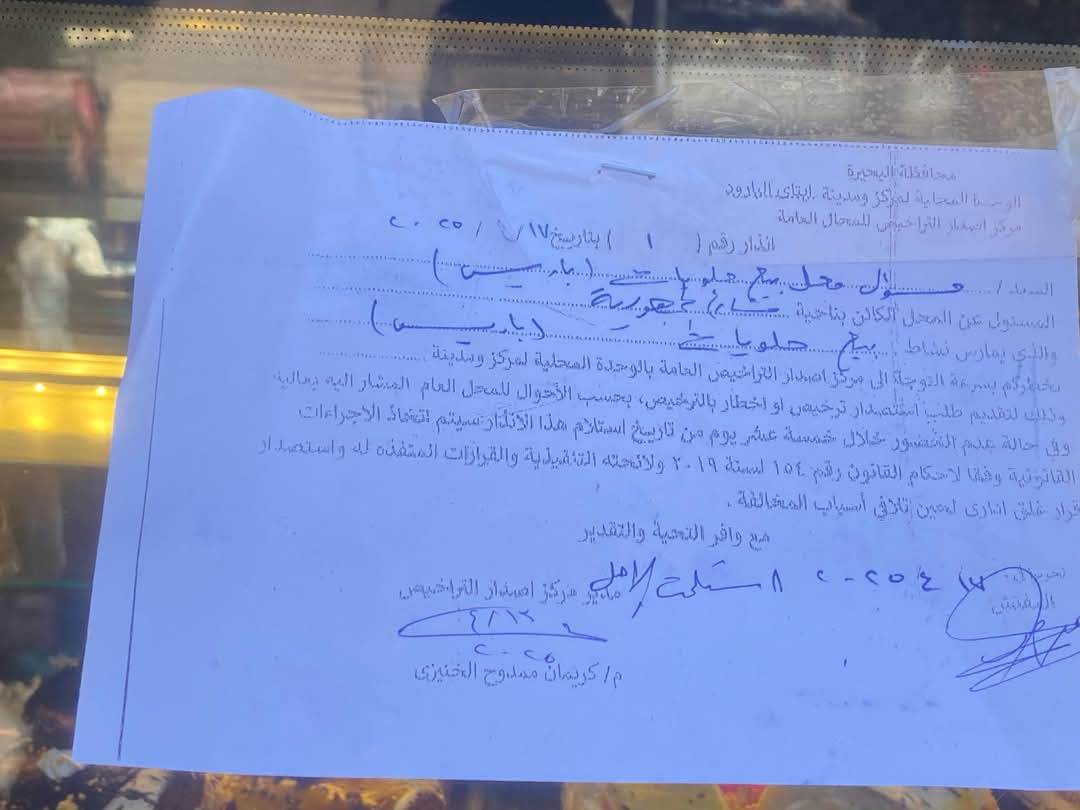 محافظة البحيرة
الوحدة المحلية لمركز ومدينة ايتاى البارود
مركز اصدار التراخيص للمحال العامة
انذار رقم ( ١ ) بتاريخ ١٧ / ٤ / ٢٠٢٥
السيد / مسؤال محل بيع حلويات (باريس)
المسئول عن المحل الكائن بناحية شارع الجمهورية
والذي يمارس نشاط بيع حلويات (باريس)
نخطركم بسرعة التوجة الى مركز اصدار التراخيص العامة بالوحدة المحلية لمركز ومدينة
وذلك لتقديم طلب استصدار ترخيص او اخطار بالترخيص، بحسب الأحوال للمحل العام المشار اليه بعاليه
وفى حالة عدم الحضور خلال خمسة عشر يوم من تاريخ استلام هذا الانذار سيتم اتخاذ الاجراءات
القانونية وفقا لاحكام القانون رقم ١٥٤ لسنة ٢٠١٩ ولائحته التنفيذية والقرارات المنفذه له واستصدار
قرار غلق ادارى لحين تلافي أسباب المخالفة .
مع وافر التحية والتقدير
تحريرا فى ٤ ٢٠٢٥ استلمت الاصل
المفتش
مدير مركز اصدار التراخيص
٤/١٣
٢٠٢٥
م/ كريمان ممدوح الخنيزى